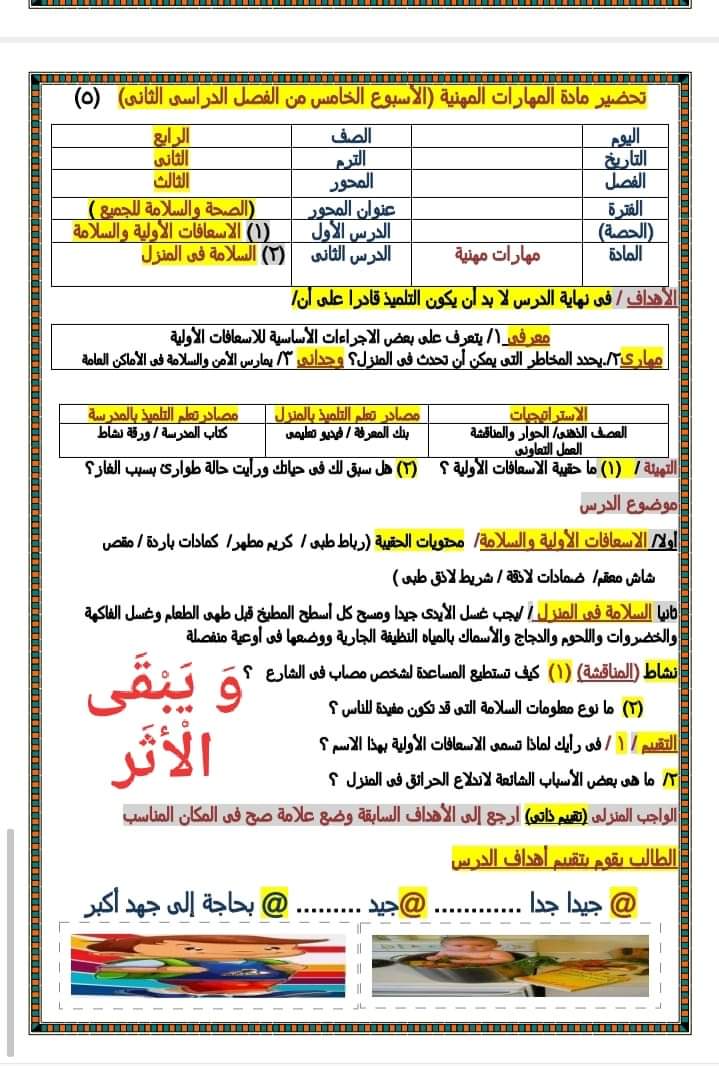 تحضير مادة المهارات المهنية (الأسبوع الخامس من الفصل الدراسى الثانى) (٥)
اليوم الصف الرابع
التاريخ الترم الثانى
الفصل المحور الثالث
الفترة عنوان المحور (الصحة والسلامة للجميع )
(الحصة) الدرس الأول (١) الاسعافات الأولية والسلامة
المادة مهارات مهنية الدرس الثانى (٢) السلامة فى المنزل
الأهداف / فى نهاية الدرس لا بد أن يكون التلميذ قادرا على أن/
معرفى ١/ يتعرف على بعض الاجراءات الأساسية للاسعافات الأولية
مهارى٢/.يحدد المخاطر التى يمكن أن تحدث فى المنزل؟ وجدانى ٣/ يمارس الأمن والسلامة فى الأماكن العامة
الاستراتيجيات مصادر تعلم التلميذ بالمنزل مصادرتعلم التلميذ بالمدرسة
العصف الذهنى /الحوار والمناقشة بنك المعرفة / فيديو تعليمى كتاب المدرسة / ورقة نشاط
العمل التعاونى
التهيئة / (١) ما حقيبة الاسعافات الأولية ؟ (٢) هل سبق لك فى حياتك ورأيت حالة طوارئ بسبب الغاز؟
موضوع الدرس
أولا/ الاسعافات الأولية والسلامة/ محتويات الحقيبة (رباط طبى / كريم مطهر/ كمادات باردة / مقص
شاش معقم/ ضمادات لاصقة / شريط لاصق طبى )
ثانيا السلامة فى المنزل / /يجب غسل الأيدى جيدا ومسح كل أسطح المطبخ قبل طهى الطعام وغسل الفاكهة
والخضروات واللحوم والدجاج والأسماك بالمياه النظيفة الجارية ووضعها فى أوعية منفصلة
نشاط (المناقشة) (١) كيف تستطيع المساعدة لشخص مصاب فى الشارع ؟
(٢) ما نوع معلومات السلامة التى قد تكون مفيدة للناس ؟
وَ يَبْقَى
الْأَثَر
التقييم / ١ / فى رأيك لماذا تسمى الاسعافات الأولية بهذا الاسم ؟
٢/ ما هى بعض الأسباب الشائعة لاندلاع الحرائق فى المنزل ؟
الواجب المنزلى (تقييم ذاتى) ارجع إلى الأهداف السابقة وضع علامة صح فى المكان المناسب
الطالب يقوم بتقييم أهداف الدرس
@ جيدا جدا ............ @جيد ......... @ بحاجة إلى جهد أكبر